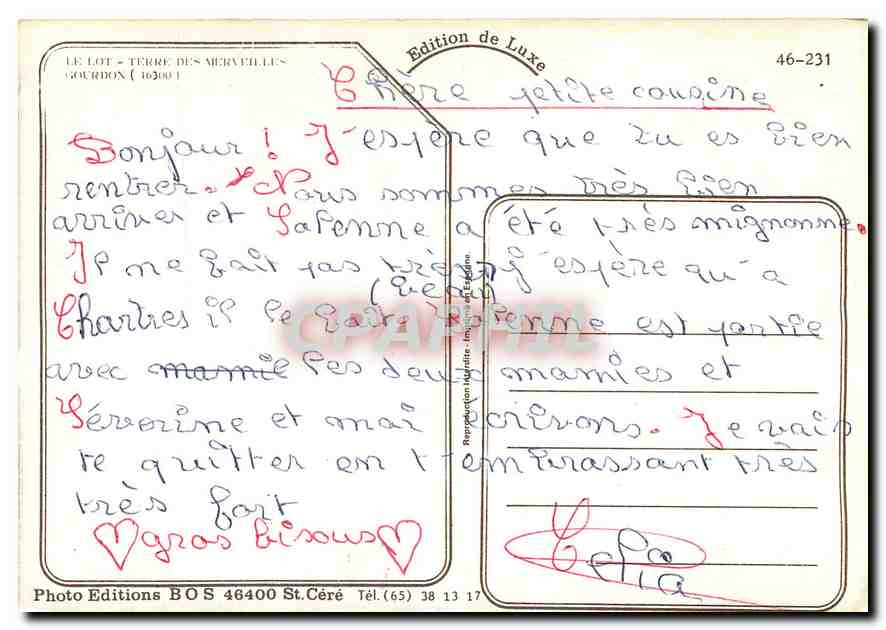 LE LOT - TERRE DES MERVEILLES
GOURDON ( 46300 )
Edition de Luxe
46-231
Chère petite cousine
Bonjour ! J'espère que tu es bien
rentrer. Nous sommes très bien
arriver et Lapenne a été très mignonne.
Il ne fait pas très j'espère qu'a
(beau)
Chartres il le fait. Lapenne est partie
avec mamie les deux mamies et
Séverine et moi écrivons. Je vais
te quitter en t-embrassant très
très fort
gros bisous
Reproduction Interdite - Imprimé en Espagne.
CPAPHIL
Photo Editions BOS 46400 St.Céré Tél. (65) 38 13 17